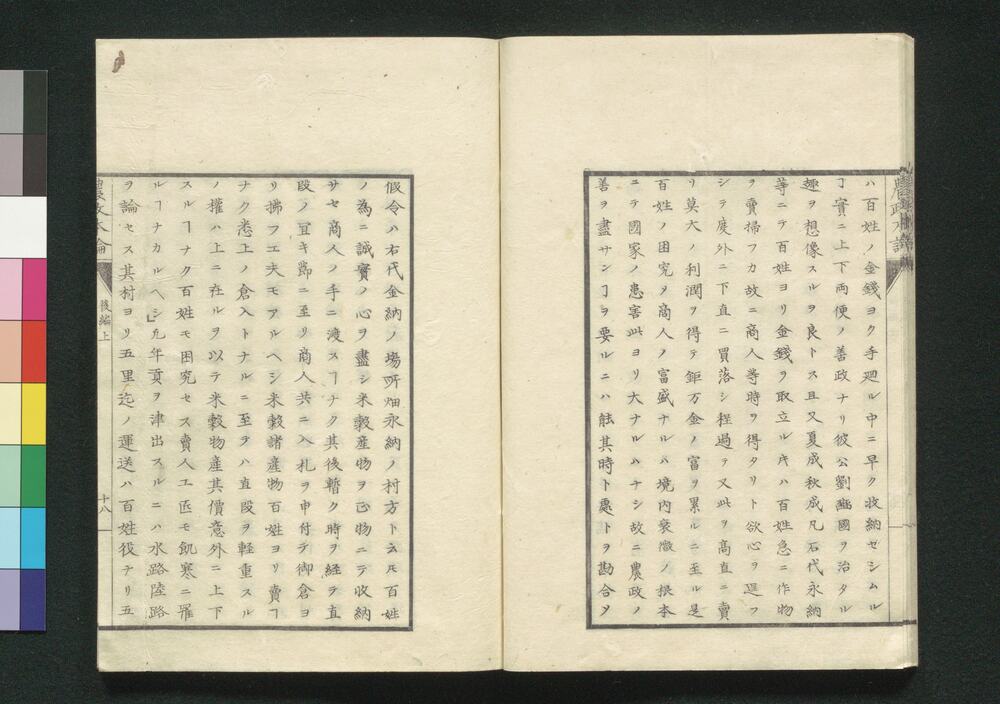 ハ百姓ノ金錢ヨク手廻ル中ニ早ク收納ゼシムル
ヿ實ニ上下兩便ノ善政ナリ彼公劉豳國ヲ治タル
趣ヲ想像スルヲ良トス且又夏成秋成凡石代永納
等ニテ百姓ヨリ金錢ヲ取立ルキハ百姓急ニ作物
ヲ賣掃フカ故ニ商人等時ヲ得タリト欲心ヲ逞フ
シテ度外ニ下直ニ買落シ程過テ又此ヲ髙直ニ賣
リ莫大ノ利潤ヲ得テ鉅万金ノ富ヲ累ルニ至ル是
百姓ノ困究ヲ商人ノ富盛ナルハ境内衰微ノ根本
ニテ國家ノ患害此ヨリ大ナルハナシ故ニ農政ノ
善ヲ盡サンヿヲ要ルニハ能其時ト處トヲ勘合タ
假令ハ右代金納ノ場所畑永納ノ村方ト云𪜈百姓
ノ為ニ誠實ノ心ヲ盡シ米穀産物ヲ正物ニテ收納
サセ商人ノ手ニ渡スヿナク其後暫ク時ヲ経テ直
段ノ宜キ節ニ至リ商人共ニ入札ヲ申付テ御倉ヨ
リ拂フ工夫モアルヘシ米穀諸産物百姓ヨリ賣ヿ
ナク悉上ノ倉入トナルニ至テハ直段ヲ軽重スル
ノ權ハ上ニ在ルヲ以テ米穀物産其價意外ニ上下
スルヿナク百姓モ困究セス賣人工匠モ飢寒ニ罹
ルヿナカルヘシ凡年貢ヲ津出スルニハ水路陸路
ヲ論セス其村ヨリ五里迄ノ運送ハ百姓役ナリ五
農政本論
後編上
十八